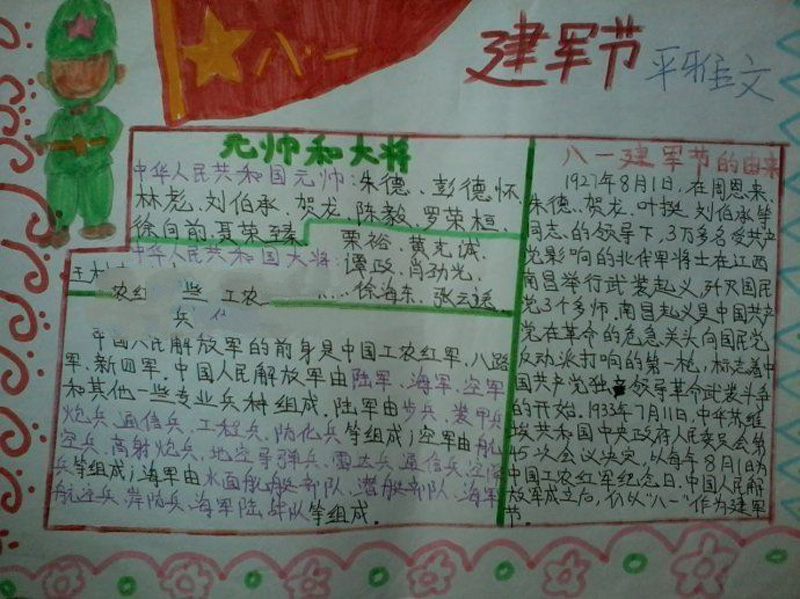 八一
建军节 平雅文
元帅和大将
中华人民共和国元帅：朱德、彭德怀
林彪、刘伯承、贺龙、陈毅、罗荣桓、
徐向前、聂荣臻
中华人民共和国大将：粟裕、黄克诚、
谭政、肖劲光、
……徐海东、张云逸
农红 些 工农
兵
中国人民解放军的前身是中国工农红军、八路
军、新四军，中国人民解放军由陆军、海军、空军
和其他一些专业兵种组成，陆军由步兵、装甲兵
炮兵、通信兵、工程兵、防化兵等组成；空军由航
空兵、高射炮兵、地空导弹兵、雷达兵通信兵、空降
兵等组成；海军由水面舰艇部队、潜艇部队、海军
航空兵、岸防兵、海军陆战队等组成．
八一建军节的由来
1927年8月1日，在周恩来、
朱德、贺龙、叶挺、刘伯承等
同志的领导下，3万多名受共产
党影响的北伐军将士在江西
南昌举行武装起义，歼灭国民
党3个多师．南昌起义是中国共产
党在革命的危急关头向国民党
反动派打响的第一枪，标志着中
国共产党独立领导革命武装斗争
的开始．1933年7月11日，中华苏维
埃共和国中央政府人民委员会第
45次会议决定，以每年8月1日为
中国工农红军纪念日．中国人民解
放军成立后，仍以“八一”作为建军
节．